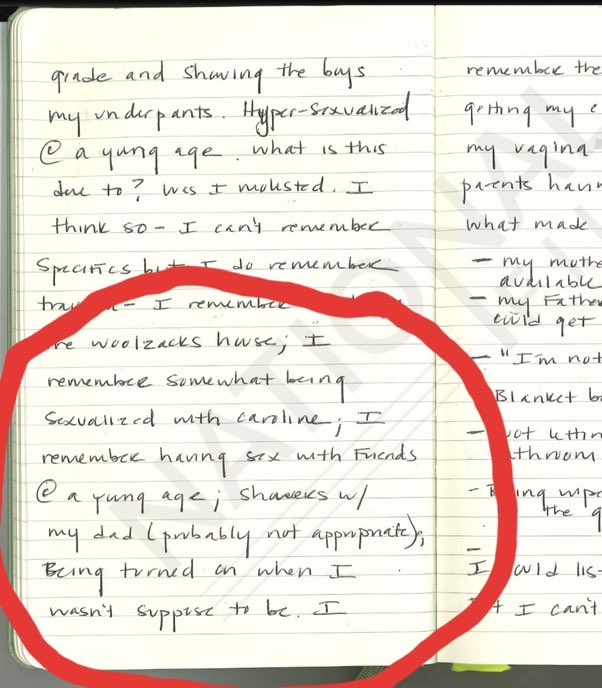 grade and showing the boys
my underpants. Hyper-sexualized
@ a yung age. what is this
due to? Was I molested. I
think so - I can't remember
specifics but I do remember
trauma - I remember
woolzacks house; I
remember somewhat being
sexualized with caroline; I
remember having sex with Friends
@ a yung age; showers w/
my dad (probably not appropriate);
Being turned on when I
wasn't suppose to be. I
remember the
getting my
my vagina
parents
what made
- my
available
- my Father
could get
- "I'm not
Blanket
- not
-
the
-
I
I can't
NATIONAL